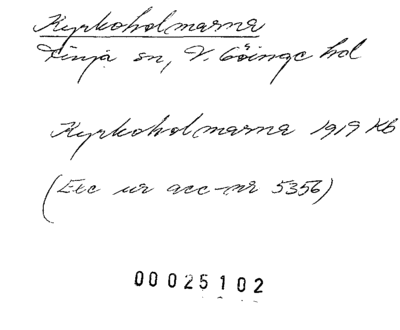 Kyrkoholmarna
Finja sn, V. Göinge hd
Kyrkoholmarna 1919 Kb
(Exc ur acc-nr 5356)
00025102